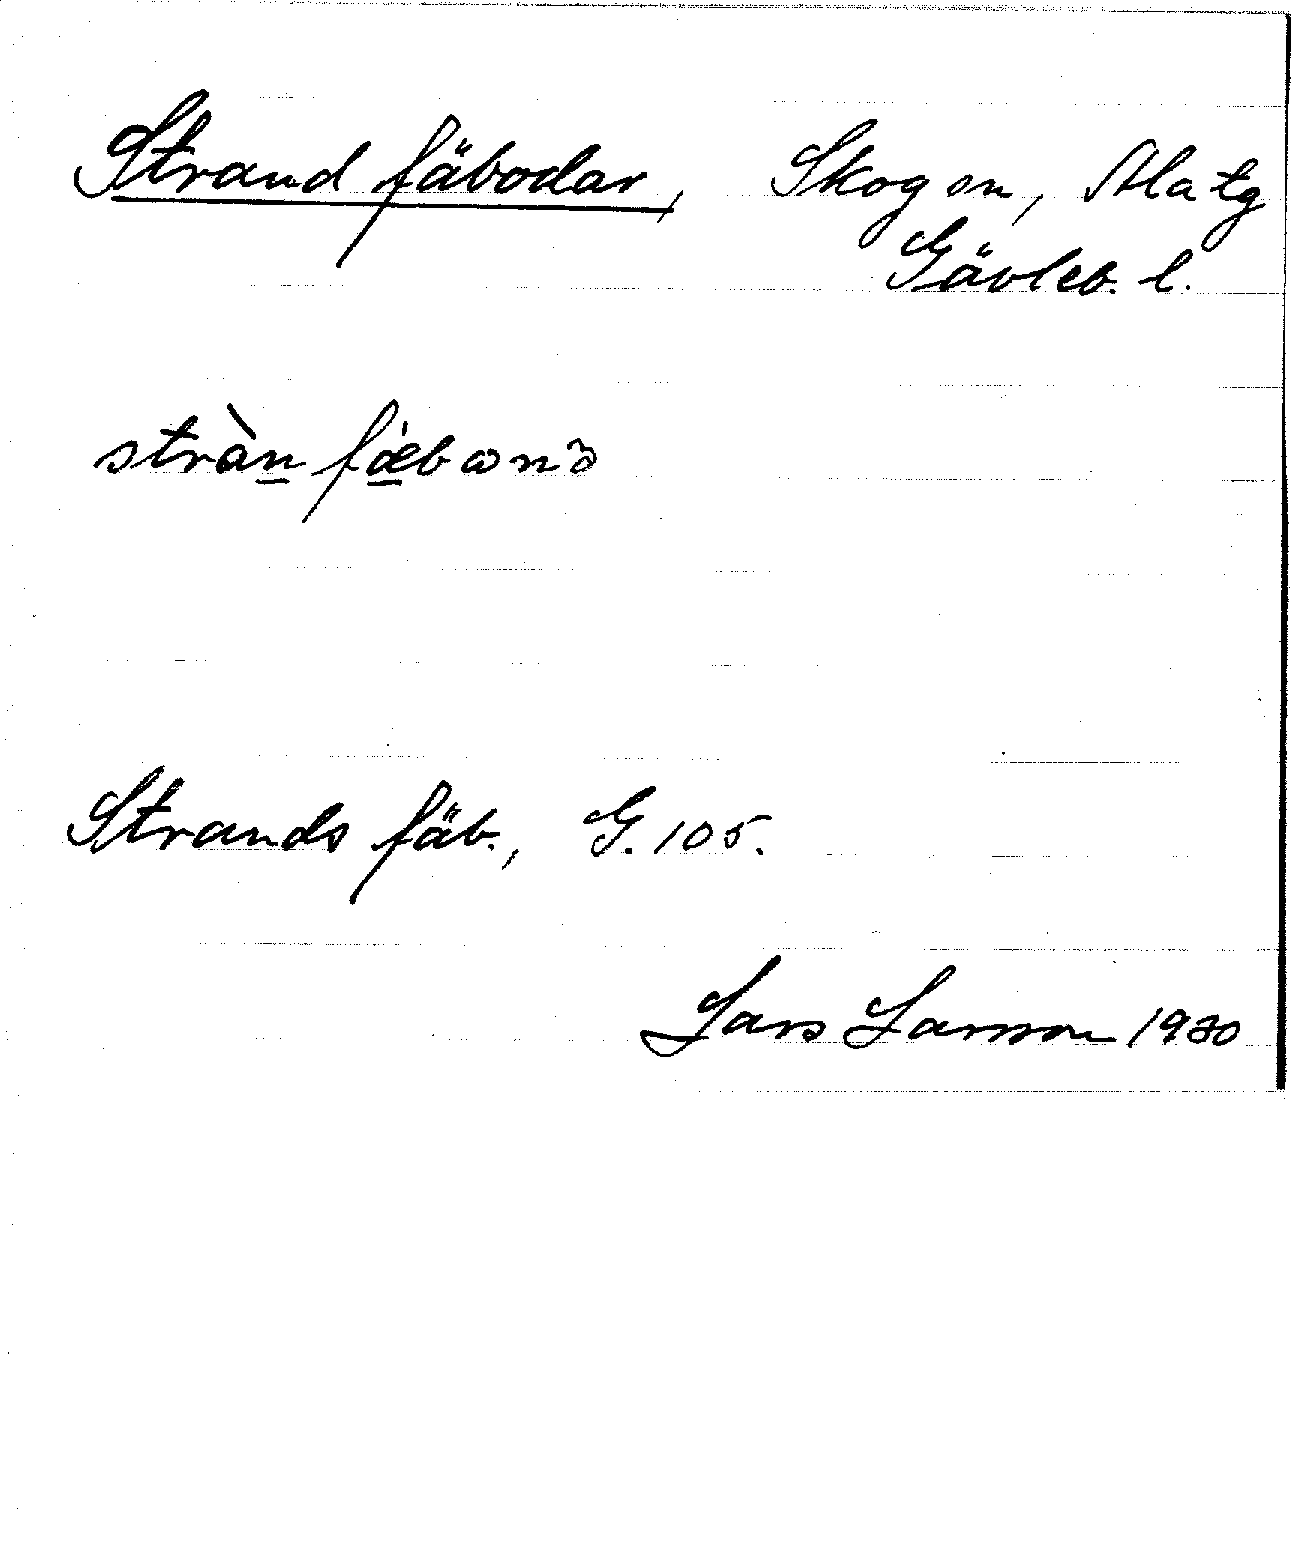 Strand fäbodar, Skog sn, Ala tg
Gävleb. l.
stràn fæ̀bωnə
Strands fäb., G. 105.
Lars Larsson 1930